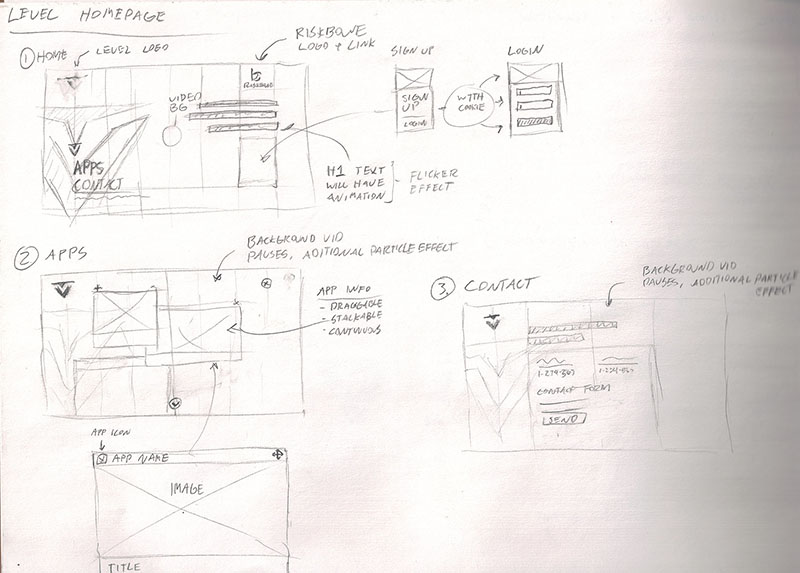 LEVEL HOMEPAGE
1 HOME
LEVEL LOGO
RISKBONE
LOGO + LINK
VIDEO
BG
APPS
CONTACT
H1 TEXT
WILL HAVE
ANIMATION
- FLICKER
EFFECT
SIGN UP
SIGN
UP
LOGIN
WITH
COOKIE
LOGIN
2 APPS
BACKGROUND VID
PAUSES, ADITIONAL PARTICLE EFFECT
APP INFO
- DRAGGABLE
- STACKABLE
- CONTINUOUS
APP ICON
APP NAME
IMAGE
TITLE
3. CONTACT
BACKGROUND VID
PAUSES, ADDITIONAL PARTICLE
EFFECT
CONTACT FORM
SEND